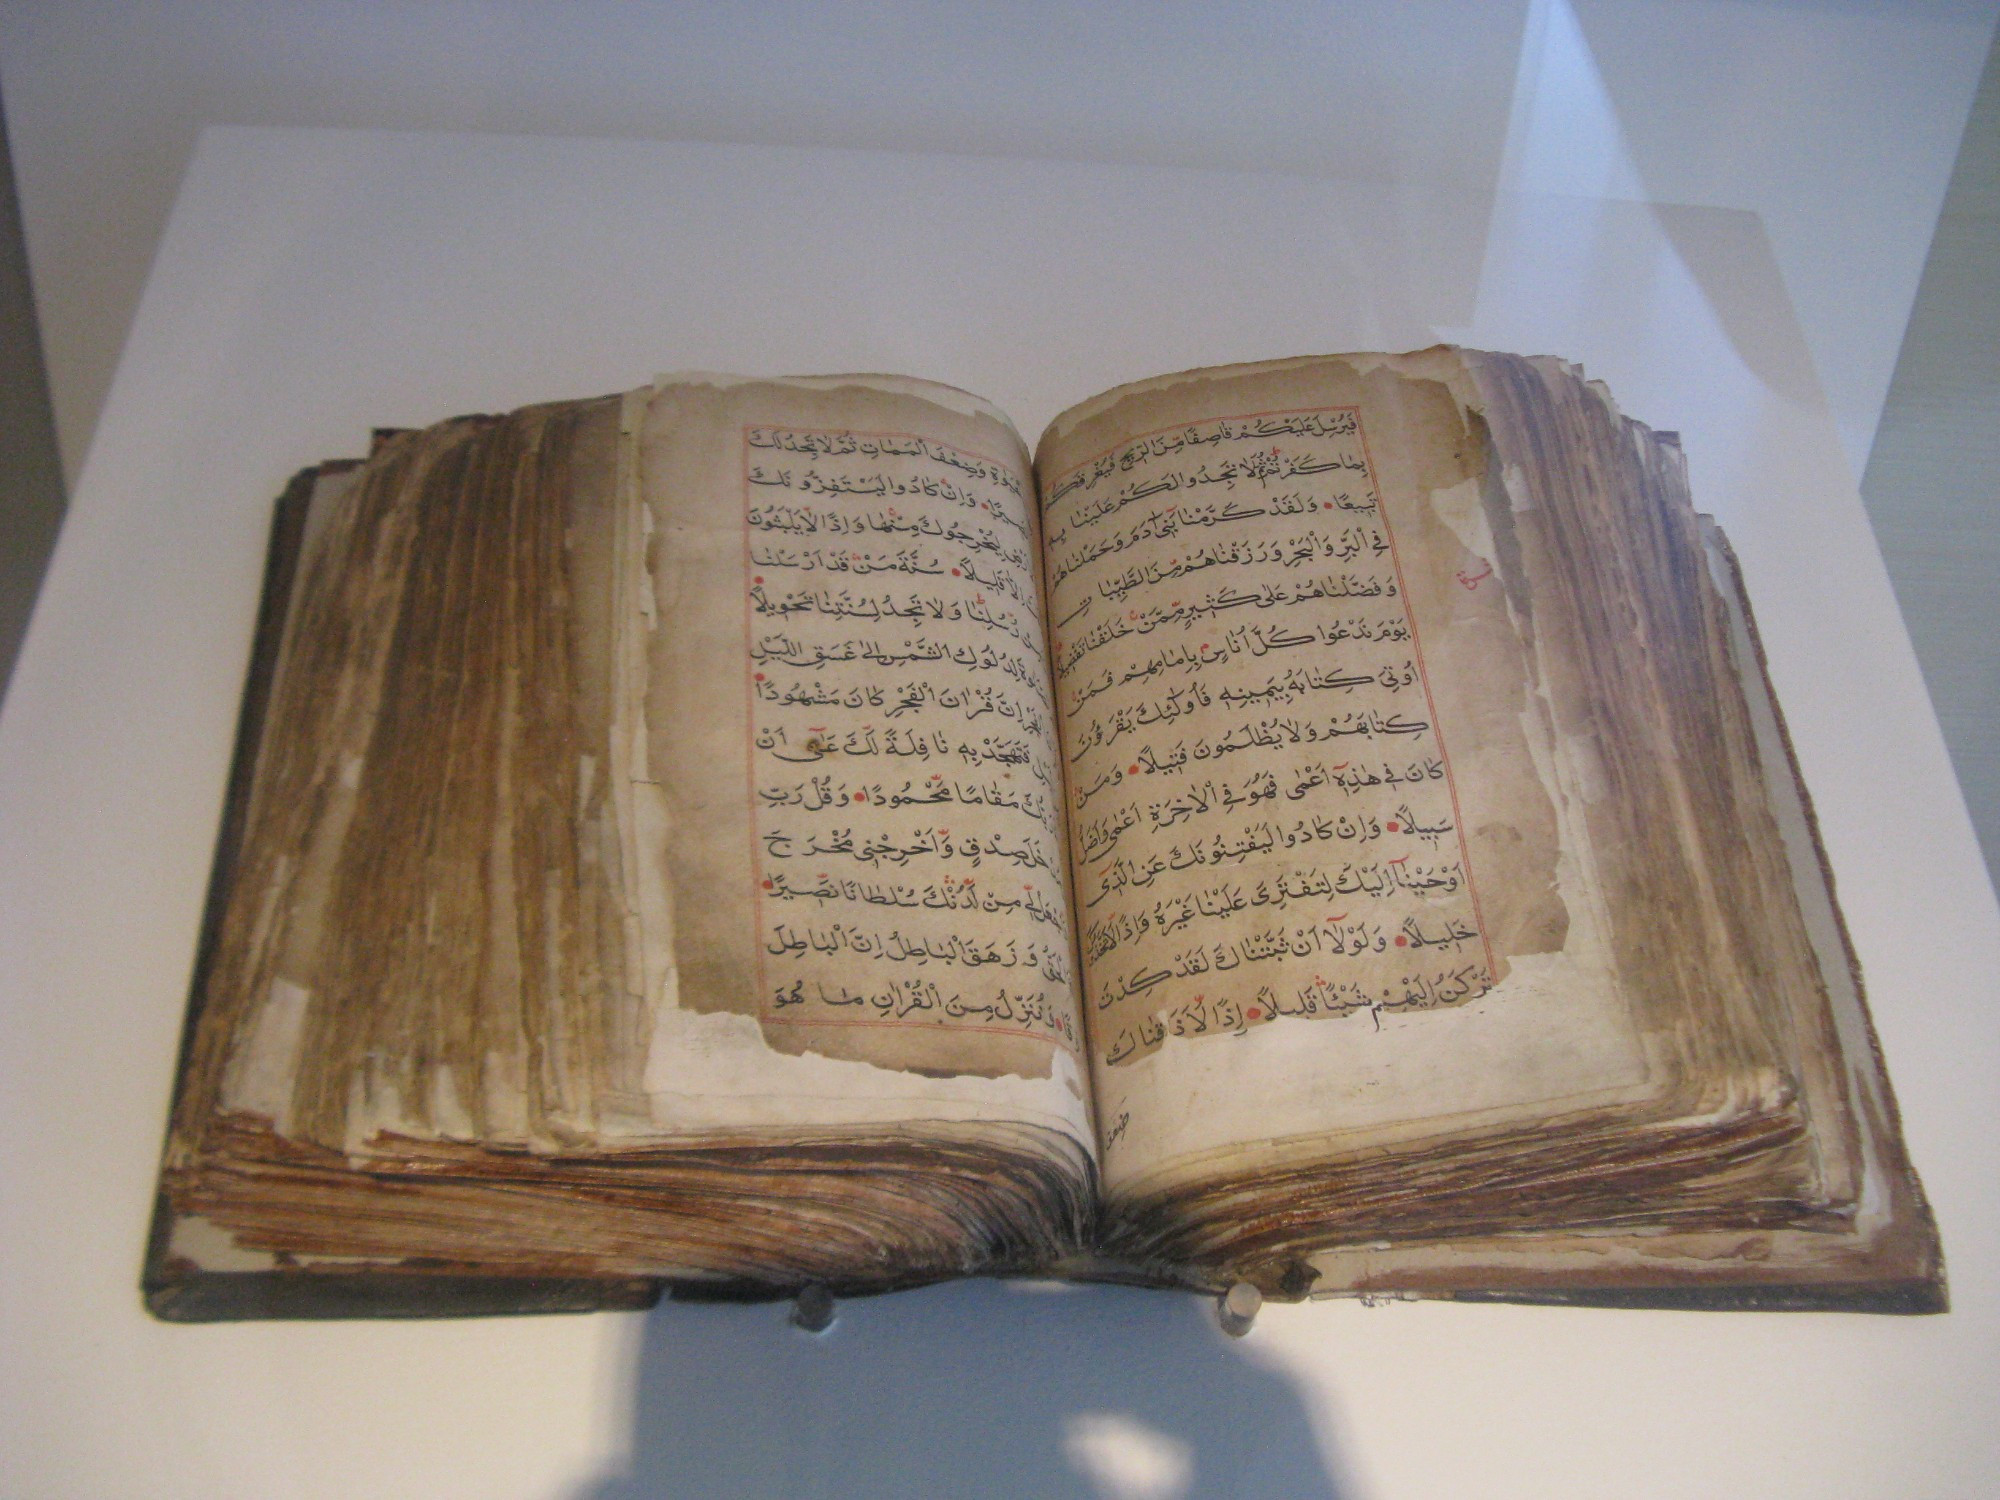 فَيُرْسِلَ عَلَيْكُمْ قَاصِفًا مِّنَ الرِّيحِ فَيُغْرِقَكُمْ
بِمَا كَفَرْتُمْ ثُمَّ لَا تَجِدُوا لَكُمْ عَلَيْنَا بِهِ
تَبِيعًا وَلَقَدْ كَرَّمْنَا بَنِى آدَمَ وَحَمَلْنَاهُمْ
فِي الْبَرِّ وَالْبَحْرِ وَرَزَقْنَاهُمْ مِّنَ الطَّيِّبَاتِ
وَفَضَّلْنَاهُمْ عَلَى كَثِيرٍ مِّمَّنْ خَلَقْنَا تَفْضِيلًا
يَوْمَ نَدْعُوا كُلَّ أُنَاسٍ بِإِمَامِهِمْ فَمَنْ
أُوتِىَ كِتَابَهُ بِيَمِينِهِ فَأُولَٰئِكَ يَقْرَؤُنَ
كِتَابَهُمْ وَلَا يُظْلَمُونَ فَتِيلًا وَمَنْ
كَانَ فِي هَٰذِهِ أَعْمَى فَهُوَ فِي الْآخِرَةِ أَعْمَى وَأَضَلُّ
سَبِيلًا وَإِنْ كَادُوا لَيَفْتِنُونَكَ عَنِ الَّذِى
أَوْحَيْنَا إِلَيْكَ لِتَفْتَرِىَ عَلَيْنَا غَيْرَهُ وَإِذًا لَاتَّخَذُوكَ
خَلِيلًا وَلَوْلَا أَنْ ثَبَّتْنَاكَ لَقَدْ كِدْتَ
تَرْكَنُ إِلَيْهِمْ شَيْئًا قَلِيلًا إِذًا لَّأَذَقْنَاكَ
ضعف
الْحَيٰوةِ وَضِعْفَ الْمَمَاتِ ثُمَّ لَا تَجِدُ لَكَ
وَإِنْ كَادُوا لَيَسْتَفِزُّونَكَ
لِيُخْرِجُوكَ مِنْهَا وَإِذًا لَّا يَلْبَثُونَ
قَلِيلًا سُنَّةَ مَنْ قَدْ أَرْسَلْنَا
رُّسُلِنَا وَلَا تَجِدُ لِسُنَّتِنَا تَحْوِيلًا
لِدُلُوكِ الشَّمْسِ إِلَى غَسَقِ اللَّيْلِ
إِنَّ قُرْآنَ الْفَجْرِ كَانَ مَشْهُودًا
فَتَهَجَّدْ بِهِ نَافِلَةً لَّكَ عَسَى أَنْ
مَقَامًا مَّحْمُودًا وَقُلْ رَبِّ
صِدْقٍ وَّأَخْرِجْنِى مُخْرَجَ
لِّى مِنْ لَّدُنْكَ سُلْطَانًا نَّصِيرًا
وَزَهَقَ الْبَاطِلُ إِنَّ الْبَاطِلَ
وَنُنَزِّلُ مِنَ الْقُرْآنِ مَا هُوَ